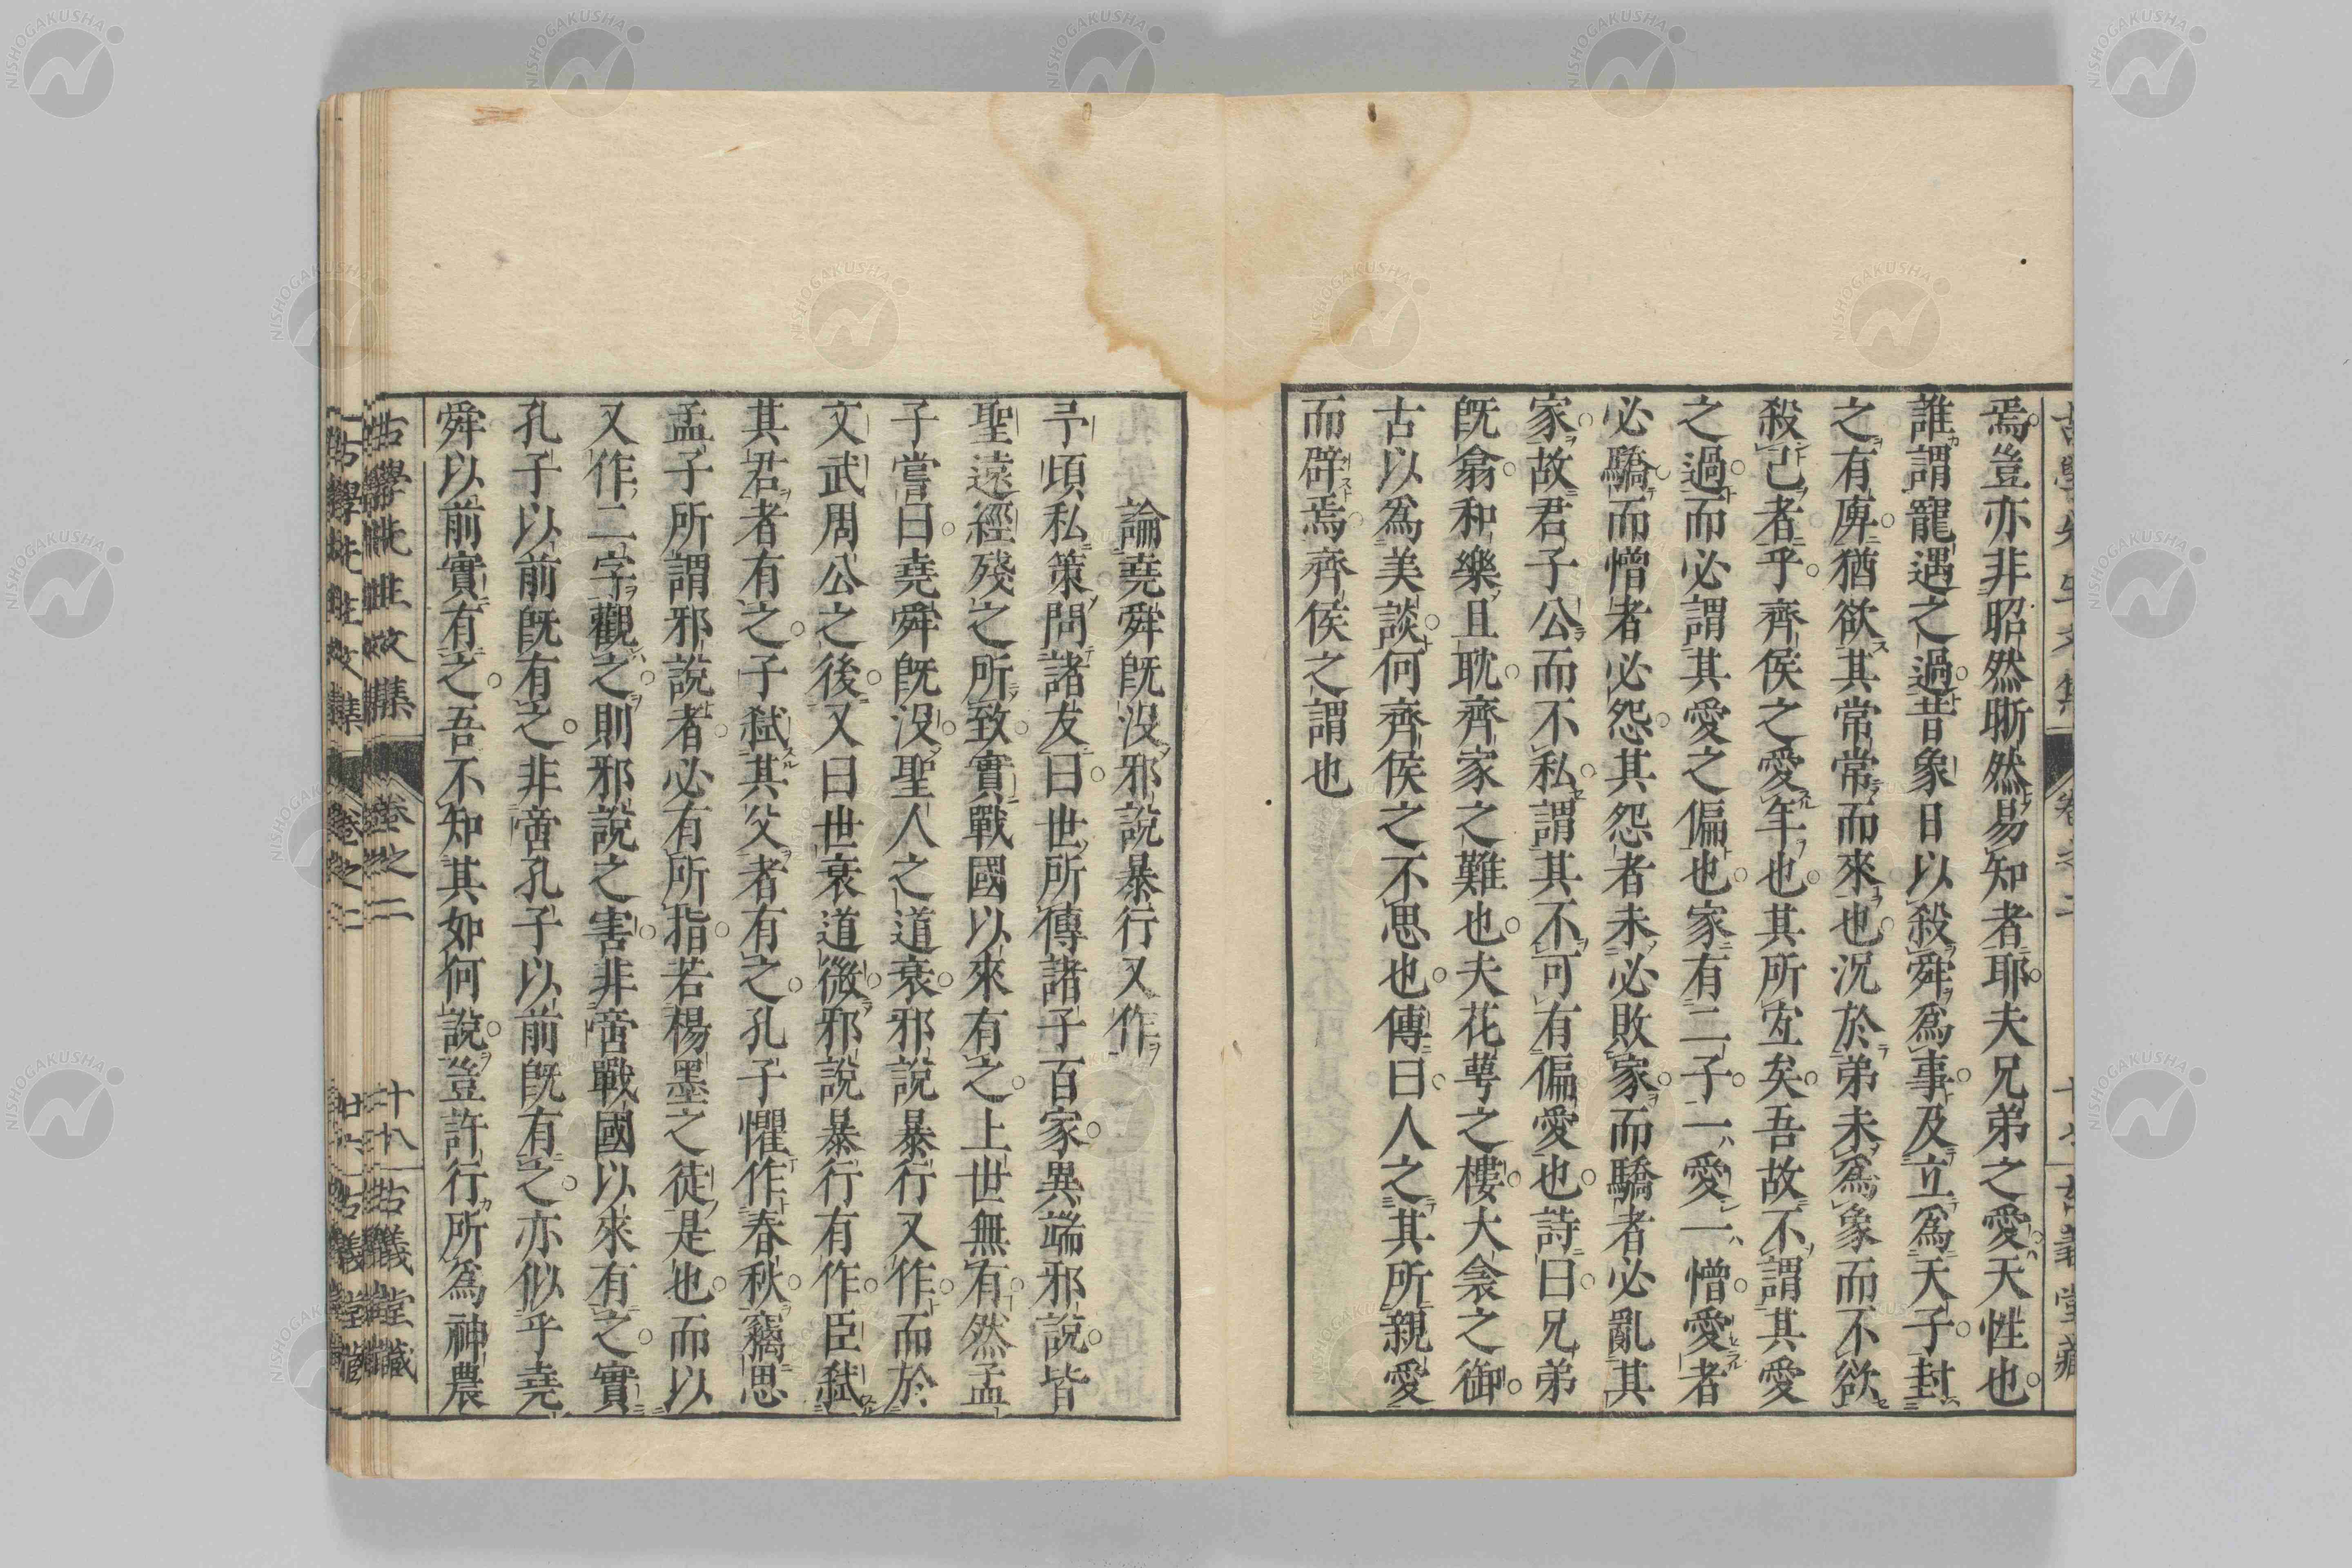 焉豈亦非昭然晣然易知者耶夫兄弟之愛天性也
誰謂寵遇之過昔象日以殺舜爲事及立爲天子封
之有庳猶欲其常常而來也況於弟未爲象而不欲
殺己者乎齊侯之愛年也其所宜矣吾故不謂其愛
之過而必謂其愛之偏也家有二子一愛一憎愛者
必驕而憎者必怨其怨者未必敗家而驕者必亂其
家故君子公而不私謂其不可有偏愛也詩曰兄弟
既翕和樂且耽齊家之難也夫花萼之樓大衾之御
古以爲美談何齊侯之不思也傳曰人之其所親愛
而辟焉齊侯之謂也
論堯舜既沒邪說暴行又作
予頃私策問諸友曰世所傳諸子百家異端邪說皆
聖遠經殘之所致實戰國以來有之上世無有然孟
子嘗曰堯舜既沒聖人之道衰邪說暴行又作而於
文武周公之後又曰世衰道微邪說暴行有作臣弑
其君者有之子弑其父者有之孔子懼作春秋竊思
孟子所謂邪說者必有所指若楊墨之徒是也而以
又作二字觀之則邪說之害非啻戰國以來有之實
孔子以前既有之非啻孔子以前既有之亦似乎堯
舜以前實有之吾不知其如何說豈許行所爲神農
古學先生文集 卷之二 十八 古義堂藏
NISHOGAKUSHA